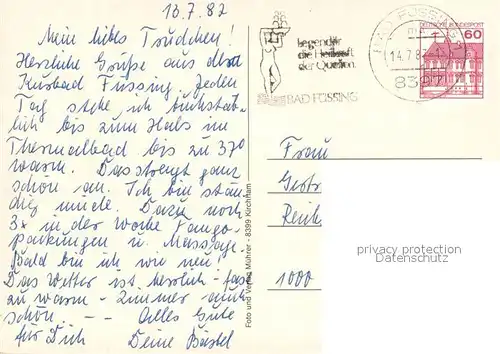 13.7.82
Mein liebes Trudchen!
Herzliche Grüße aus dem
Kurbad Füssing. Jeden
Tag stehe ich buchstäb-
lich bis zum Hals im
Thermalbad bis zu 37°
warm. Das strengt ganz
schön an. Ich bin stän-
dig müde. Dazu noch
3x in der Woche Fango-
packungen u. Massage.
Bald bin ich wie neu!
Das Wetter ist herrlich - fast
zu warm - Zimmer auch
schön. -- Alles Gute
für Dich Deine Bästel
Legendär
die Heilkraft
der Quellen.
BAD FÜSSING
BAD FÜSSING
14.7.8
8397
DEUTSCHE BUNDESPOST
60
Foto und Verlag Mührer - 8399 Kirchham
Frau
Gertr
Rent
1000
privacy protection
Datenschutz